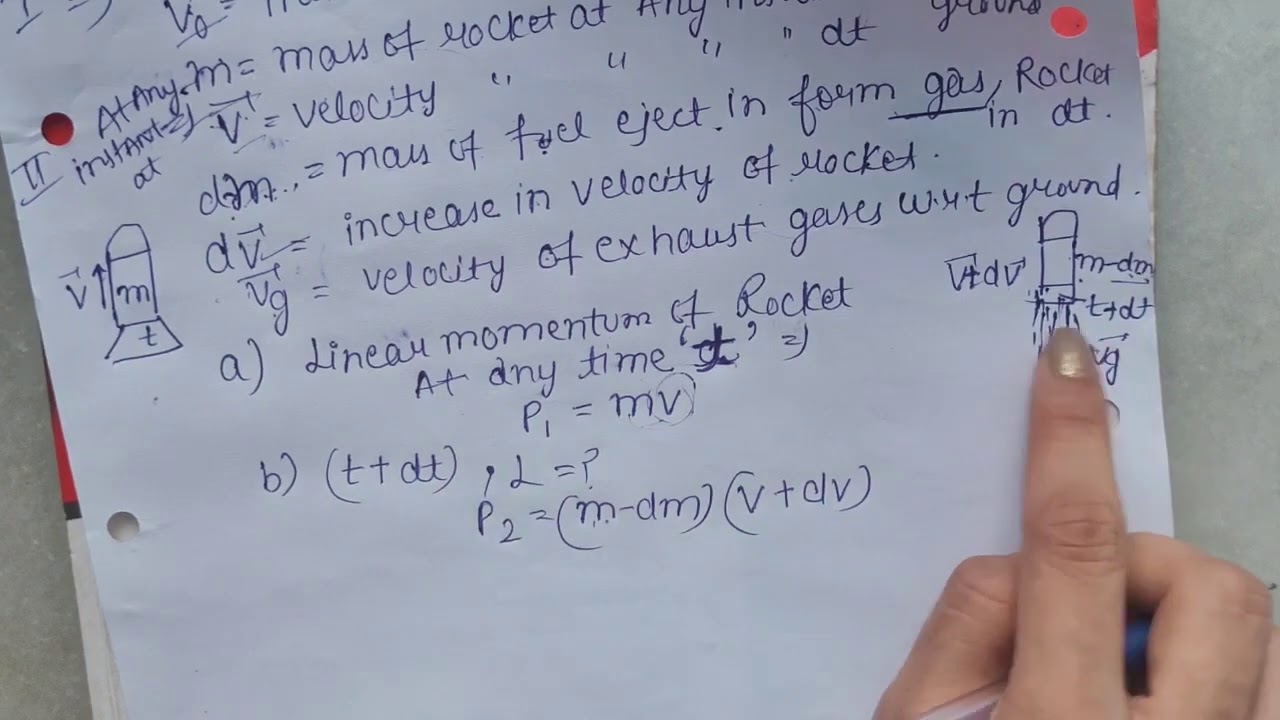 V₀ =
At Any instant => at
m = mass of rocket at Any ground
V⃗ = velocity " " " " dt
II
dm = mass of fuel eject in form gas, Rocket in dt.
dV⃗ = increase in velocity of rocket.
V⃗g = velocity of exhaust gases w.r.t ground.
V⃗ m t
V⃗+dV⃗ m-dm
t+dt
a) Linear momentum of Rocket
At any time 't' =>
P₁ = mv
b) (t+dt) , L = ?
P₂ = (m-dm) (v+dv)